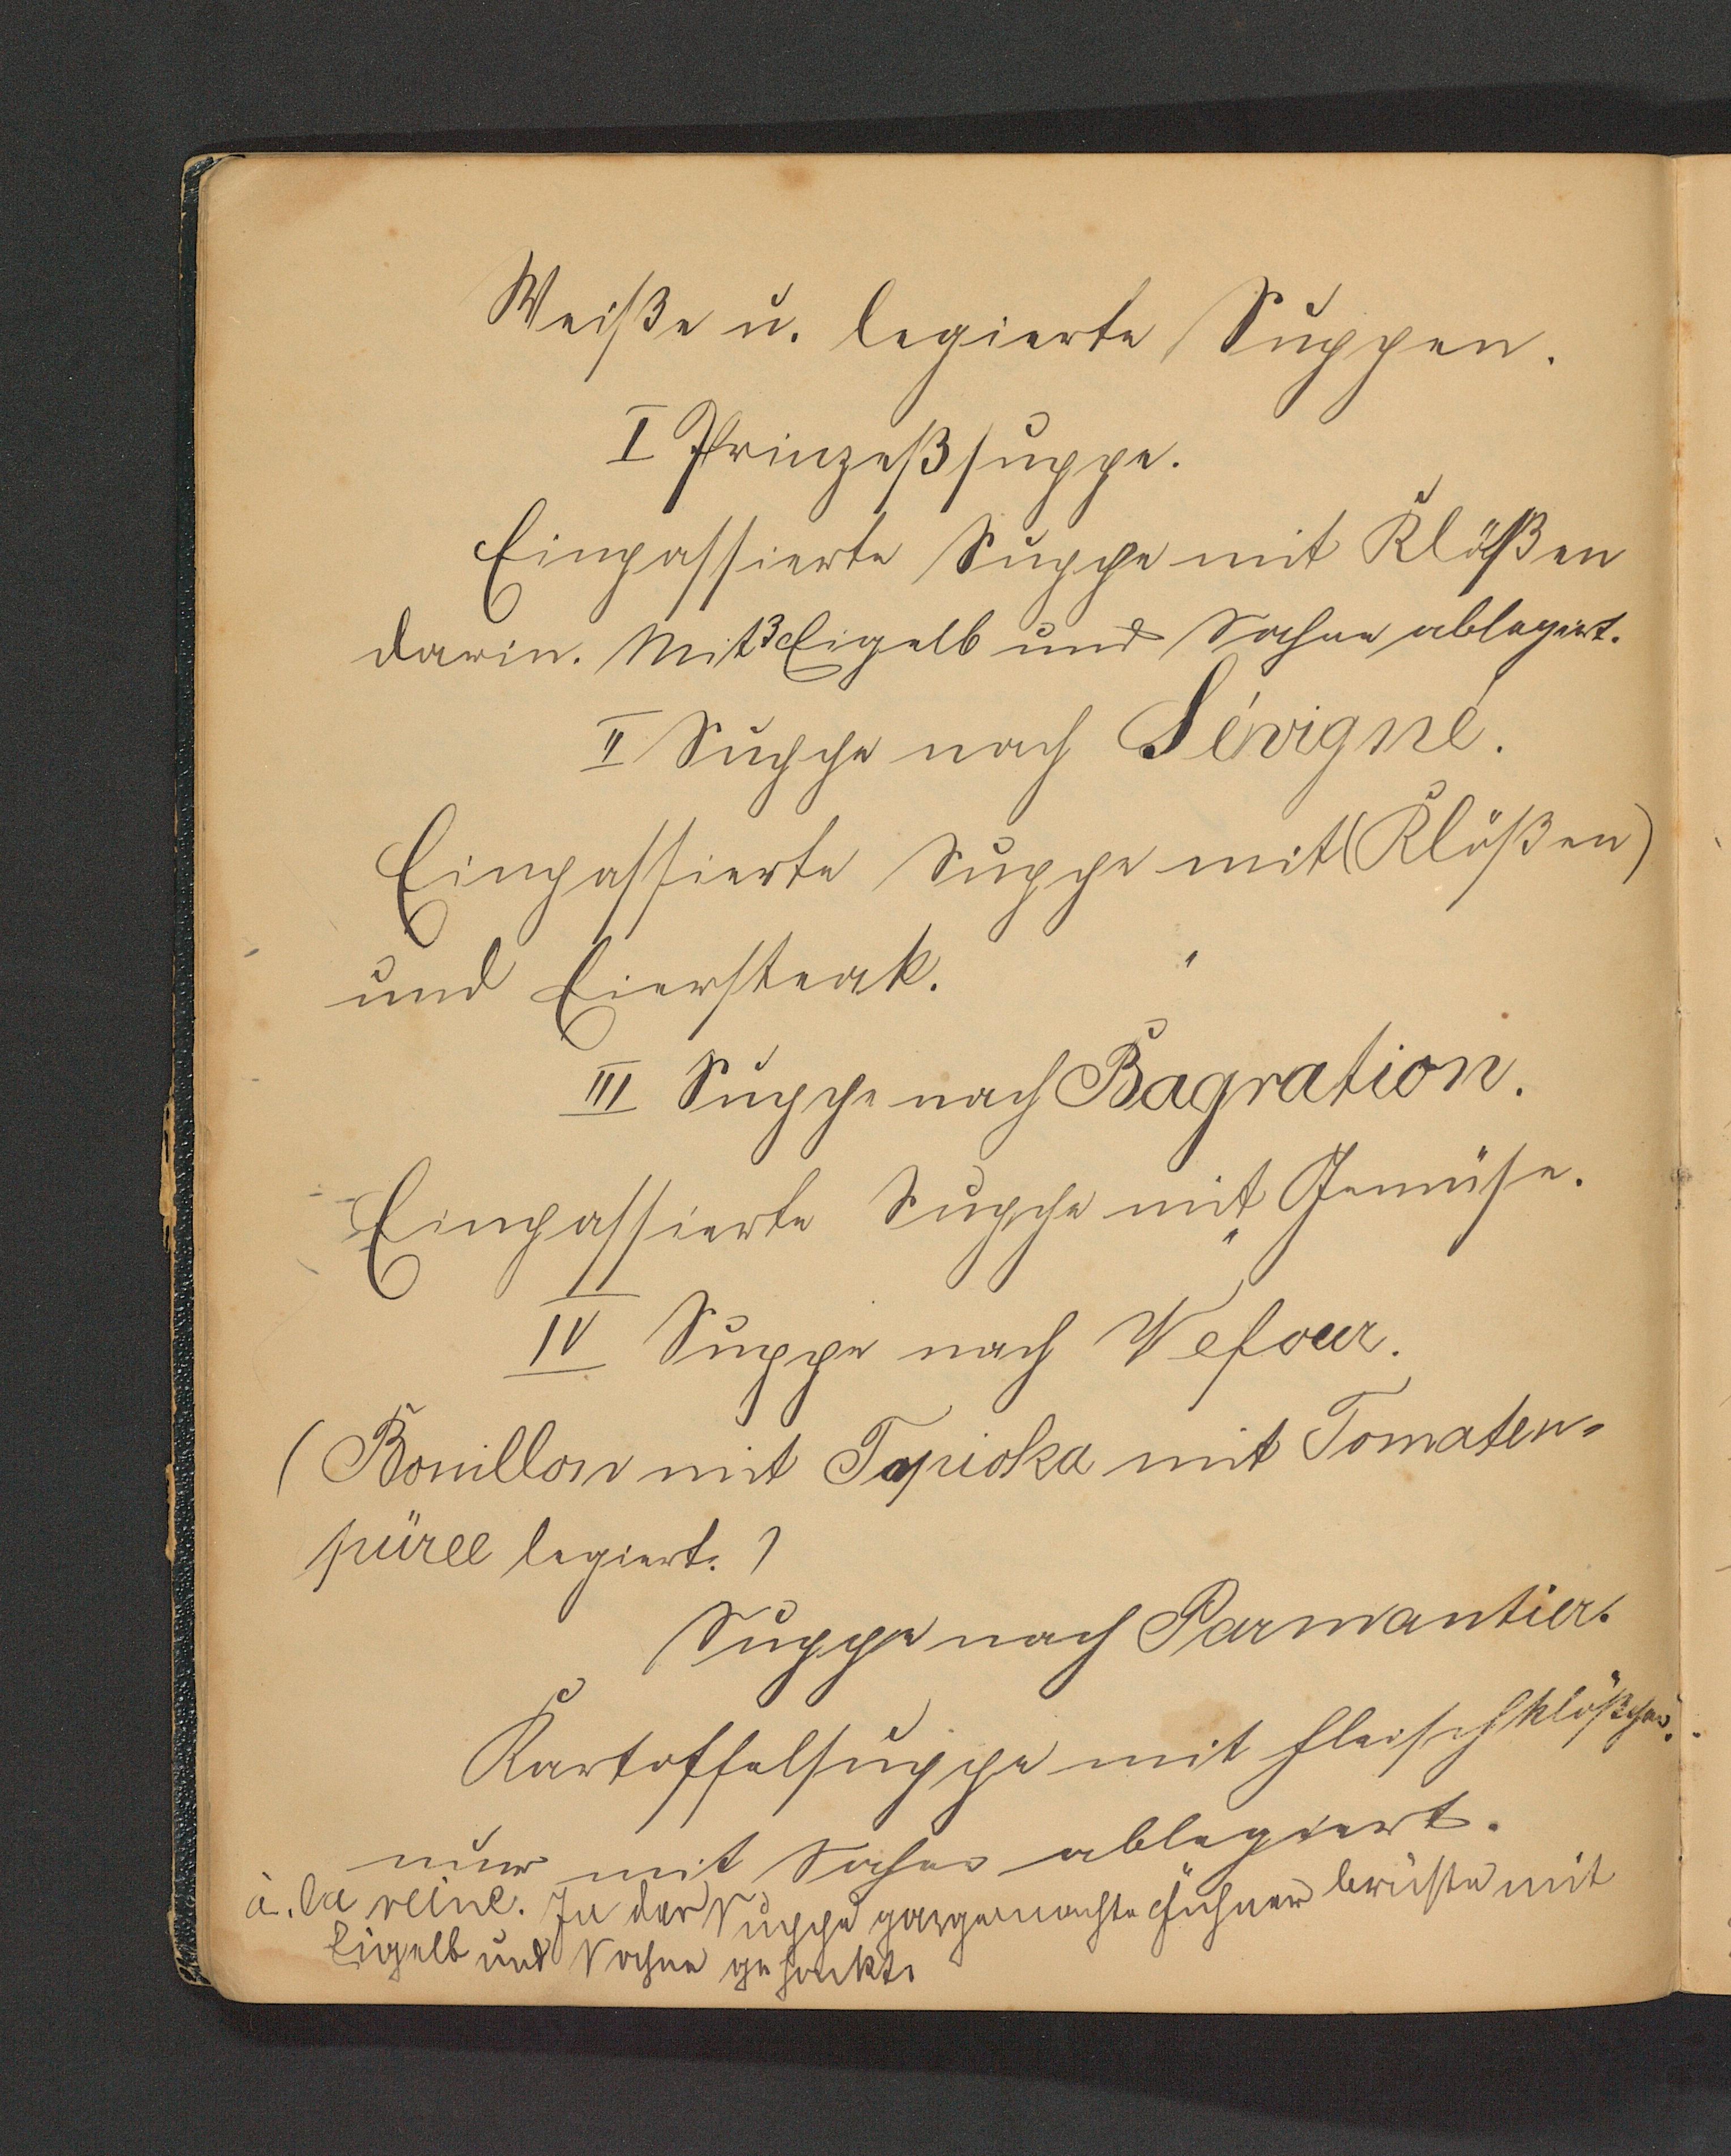 Weiße u. legierte Suppen.
I Prinzeßsuppe.
Einpassierte Suppe mit Klößen
darin. Mit 3 Eigelb und Sahne ablegiert.
II Suppe nach Sévigné.
Einpassierte Suppe mit (Klößen)
und Eiersteak.
III Suppe nach Bagration.
Einpassierte Suppe mit Gemüse.
IV Suppe nach Véfour.
(Bouillon mit Tapioka mit Tomaten-
püree legiert.)
Suppe nach Parmantier.
Kartoffelsuppe mit Fleischklößchen.
nur mit Sahne ablegiert.
à la reine. In der Suppe gargemachte Hühnerbrüste mit
Eigelb und Sahne gehackt.